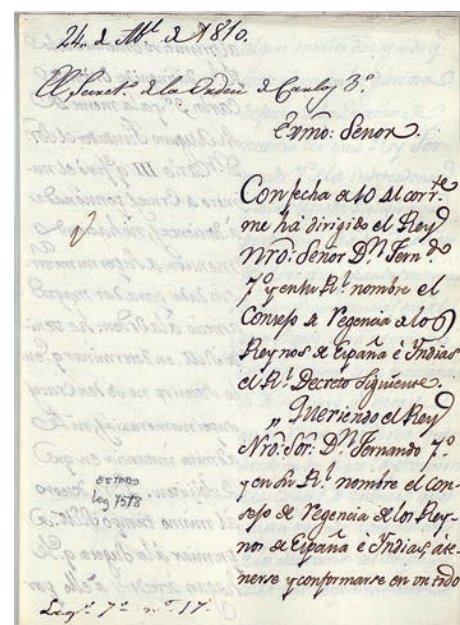 24. d Ab.l d 1810.
El Secret.o d la Orden d Carlos 3.o
Exmo: Senor.
Con fecha d 10 del corr.te
me há dirigido el Rey
Nro: Señor D.n Fern.do
7.o y en su R.l nombre el
Consejo de Regencia de los
Reynos de España é Indias
el R.l Decreto Siguiente.
„ Queriendo el Rey
Nro: Sor: D.n Fernando 7.o
y en su R.l nombre el Con-
sejo de Regencia de los Rey-
nos de España é Indias, ate-
nerse y conformarse en un todo
ESTADO
Leg 7578
Leg.o 7.o n.o 17.